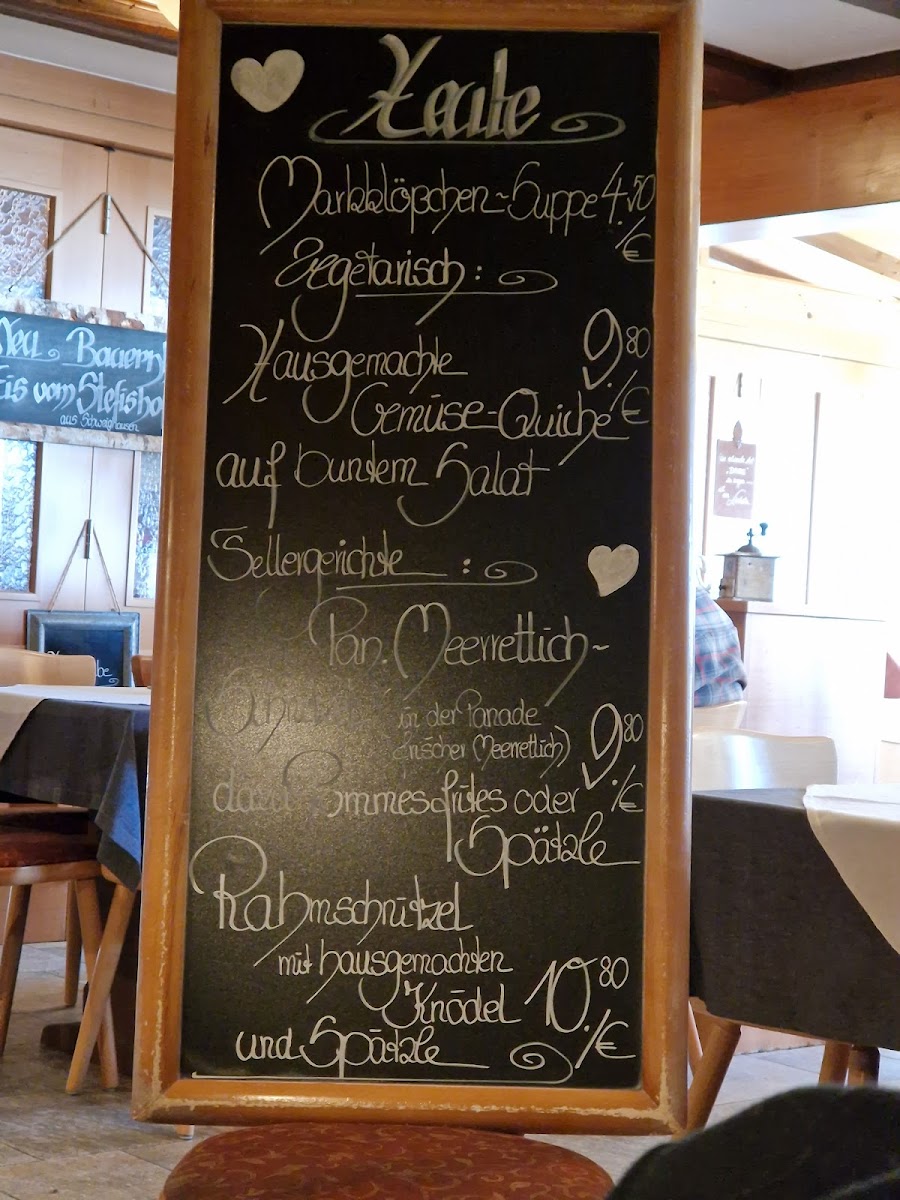 Heute
Markklöpchen-Suppe 4.50
./€
Vegetarisch:
Hausgemachte 9.80
./€
Gemüse-Quiche
auf buntem Salat
Tellergerichte:
Pan. Meerrettich-
in der Panade
frischer Meerrettich) 9.80
dazu Pommesfrites oder ./€
Spätzle
Rahmschnitzel
mit hausgemachten
Knödel 10.80
und Spätzle ./€
Neu Bauern
Eis vom Stefisho
aus Schweighausen